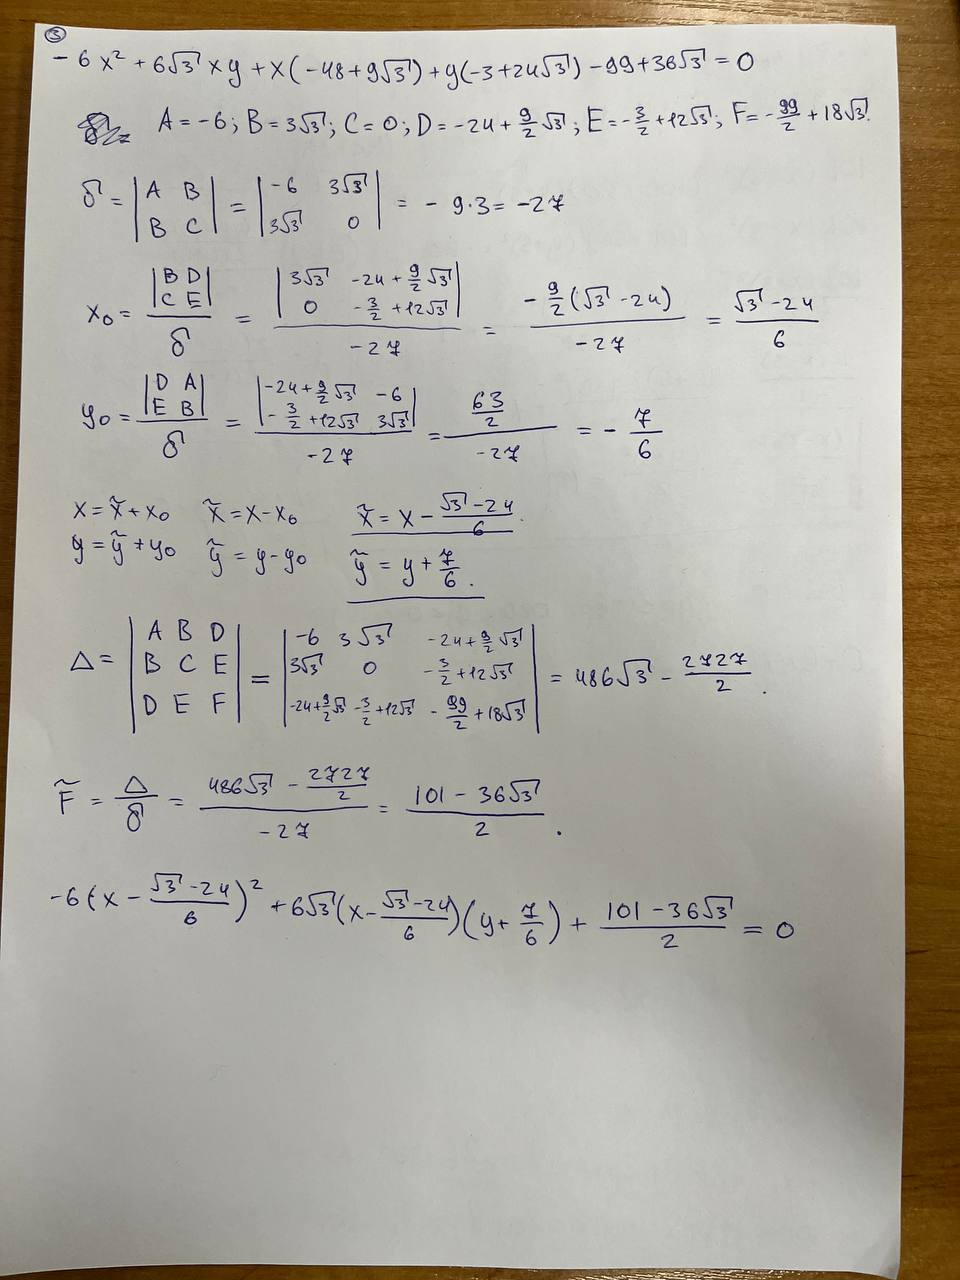 ③
- 6x² + 6√3 xy + x(-48+9√3) + y(-3+24√3) - 99 + 36√3 = 0
A = -6; B = 3√3; C = 0; D = -24 + 9/2 √3; E = -3/2 + 12√3; F = -99/2 + 18√3.
δ = |A B; B C| = |-6 3√3; 3√3 0| = - 9·3 = -27
x₀ = |B D; C E| / δ = |3√3 -24 + 9/2 √3; 0 -3/2 + 12√3| / -27 = -9/2 (√3 - 24) / -27 = (√3 - 24) / 6
y₀ = |D A; E B| / δ = |-24 + 9/2 √3 -6; -3/2 + 12√3 3√3| / -27 = 63/2 / -27 = - 7/6
x = x̃ + x₀ x̃ = x - x₀ x̃ = x - (√3 - 24)/6.
y = ỹ + y₀ ỹ = y - y₀ ỹ = y + 7/6.
Δ = |A B D; B C E; D E F| = |-6 3√3 -24 + 9/2 √3; 3√3 0 -3/2 + 12√3; -24 + 9/2 √3 -3/2 + 12√3 -99/2 + 18√3| = 486√3 - 2727/2.
F̃ = Δ/δ = (486√3 - 2727/2) / -27 = (101 - 36√3) / 2.
-6(x - (√3 - 24)/6)² + 6√3(x - (√3 - 24)/6)(y + 7/6) + (101 - 36√3)/2 = 0